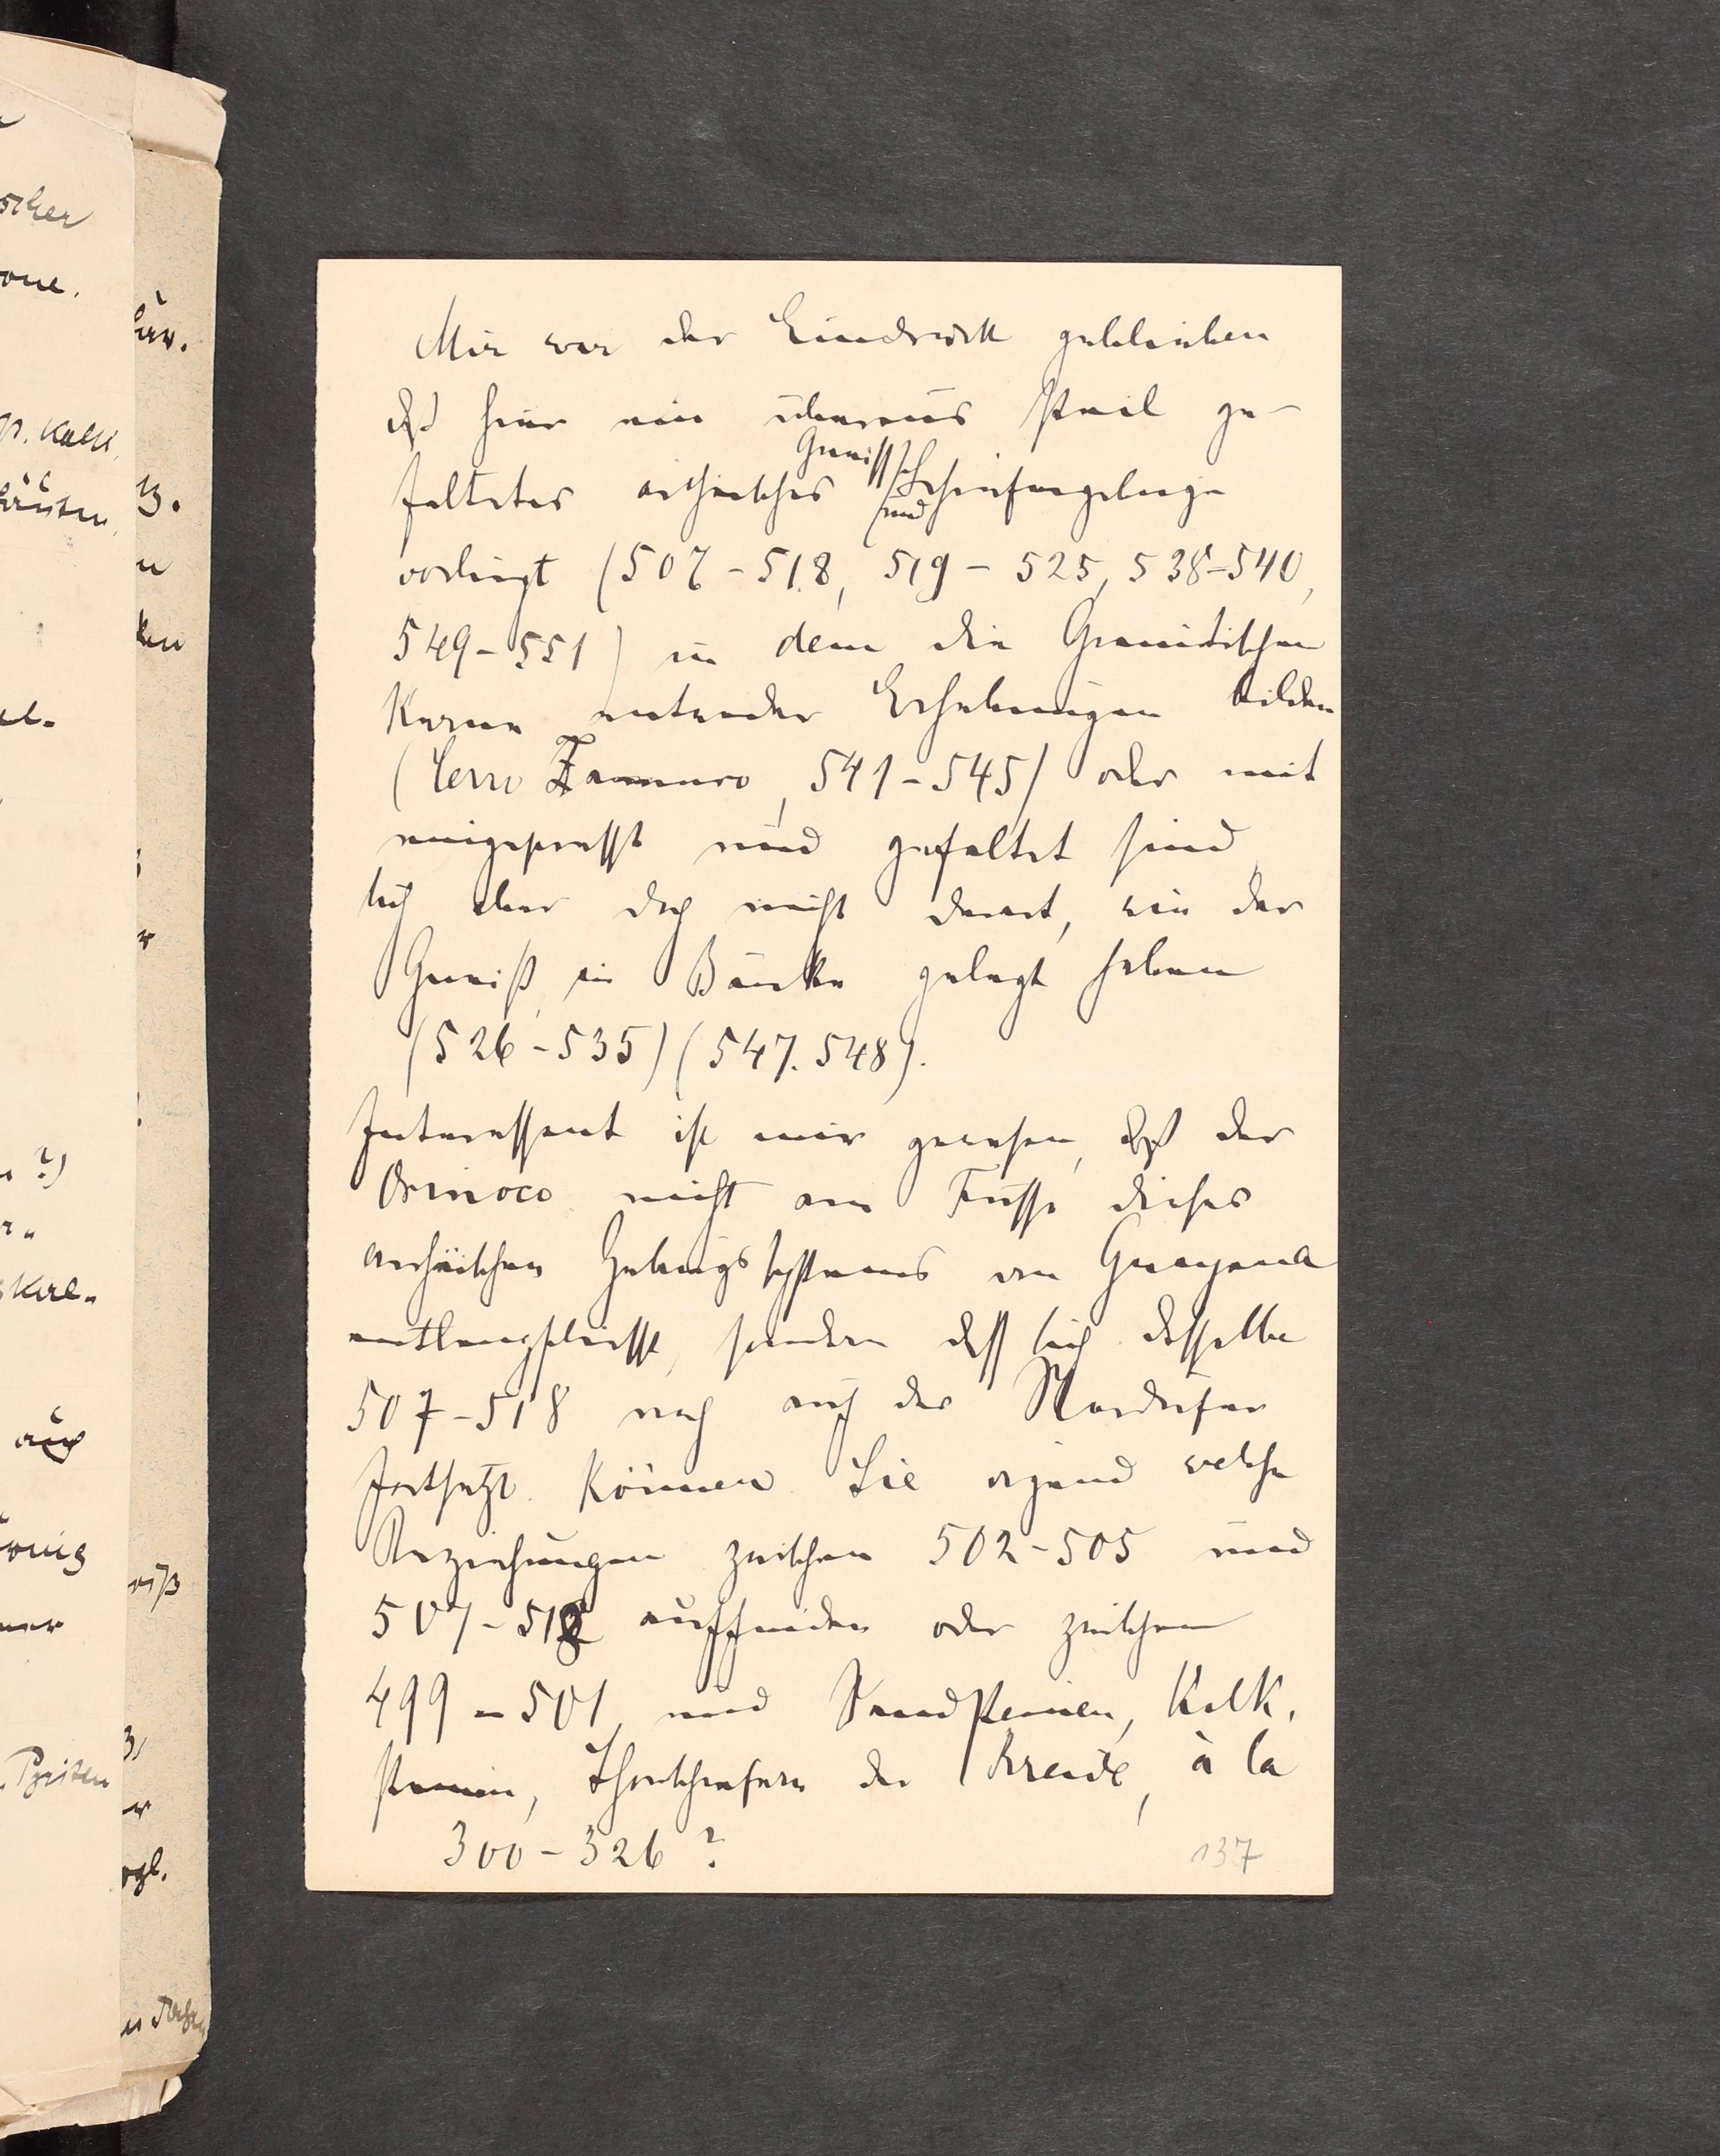 Mir war der Eindruck geblieben
daß hier ein überaus steil ge-
faltetes archäisches Gneiss und Schiefergebirge
vorliegt (507-518, 519-525, 538-540,
549-551) in dem die Granitischen
Kerne entweder Erhebungen bilden
(Cerro Zamuro, 541-545) oder mit
eingepresst und gefaltet sind
sich aber doch nicht derart, wie der
Gneiß, in Bänke gelegt haben
(526-535) (547. 548).
Interessant ist mir gewesen, daß der
Orinoco nicht am Fusse dieses
archäischen Gebirgssystems von Guayana
entlangfliesst, sondern dass sich dasselbe
507-518 noch auf das Nordufer
fortsetzt. Können Sie irgend welche
Beziehungen zwischen 502-505 und
507-518 auffinden oder zwischen
499-501, und Sandsteinen, Kalk.
steinen, Thonschiefern der Kreide, à la
300-326?
137
scher
one.
p. Kalk,
B.
n
ken
r
n ?)
auch
ner
Pyriten
r
vgl.